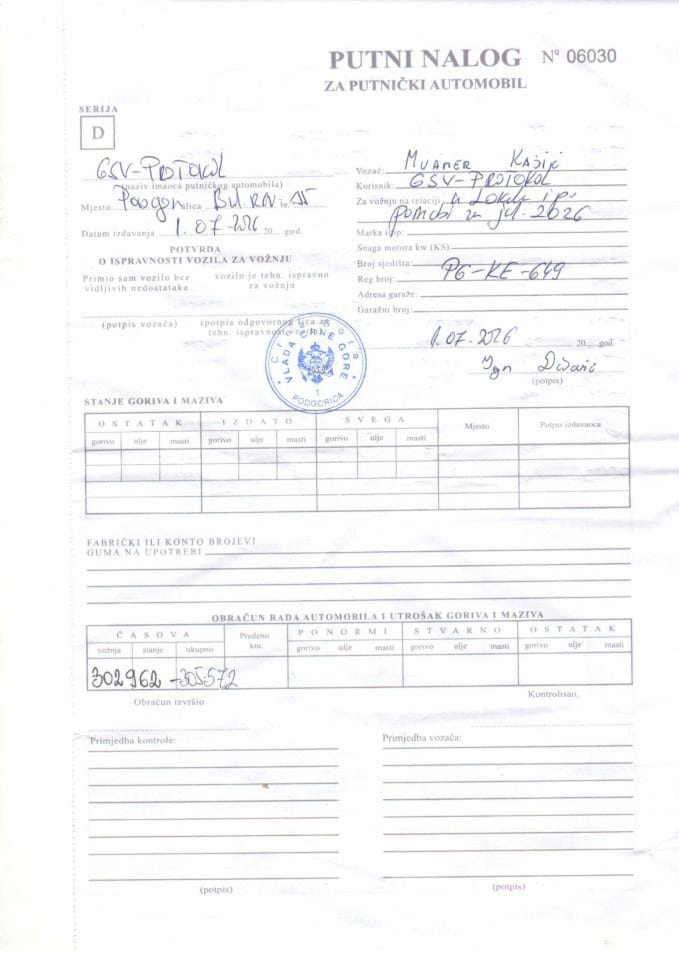 PUTNI NALOG Nº 06030
ZA PUTNIČKI AUTOMOBIL
SERIJA
D
GSV-PROTOKOL
(naziv imaoca putničkog automobila)
Mjesto Podgor ulica br.
Datum izdavanja 1.07.2026 20 god.
POTVRDA
O ISPRAVNOSTI VOZILA ZA VOŽNJU
Primio sam vozilo bez vidljivih nedostataka
vozilo je tehn. ispravno za vožnju
(potpis vozača)
(potpis odgovornog lica za tehn. ispravnost vozila)
Vozač: MUAMER
Korisnik: GSV-PROTOKOL
Za vožnju na relaciji u
za jul. 2026
Marka i tip:
Snaga motora kw (KS):
Broj sjedišta:
Reg broj: PG-KE-649
Adresa garaže:
Garažni broj:
1.07.2026 20 god.
(potpis)
Crna Gora
VLADA CRNE GORE
1
PODGORICA
STANJE GORIVA I MAZIVA
OSTATAK IZDATO SVEGA Mjesto Potpis izdavaoca
gorivo ulje masti gorivo ulje masti gorivo ulje masti
FABRIČKI ILI KONTO BROJEVI
GUMA NA UPOTREBI
OBRAČUN RADA AUTOMOBILA I UTROŠAK GORIVA I MAZIVA
ČASOVA Pređeno km. PO NORMI STVARNO OSTATAK
vožnja stanje ukupno gorivo ulje masti gorivo ulje masti gorivo ulje masti
302962 - 305572
Obračun izvršio
Kontrolisao,
Primjedba kontrole:
Primjedba vozača:
(potpis)
(potpis)